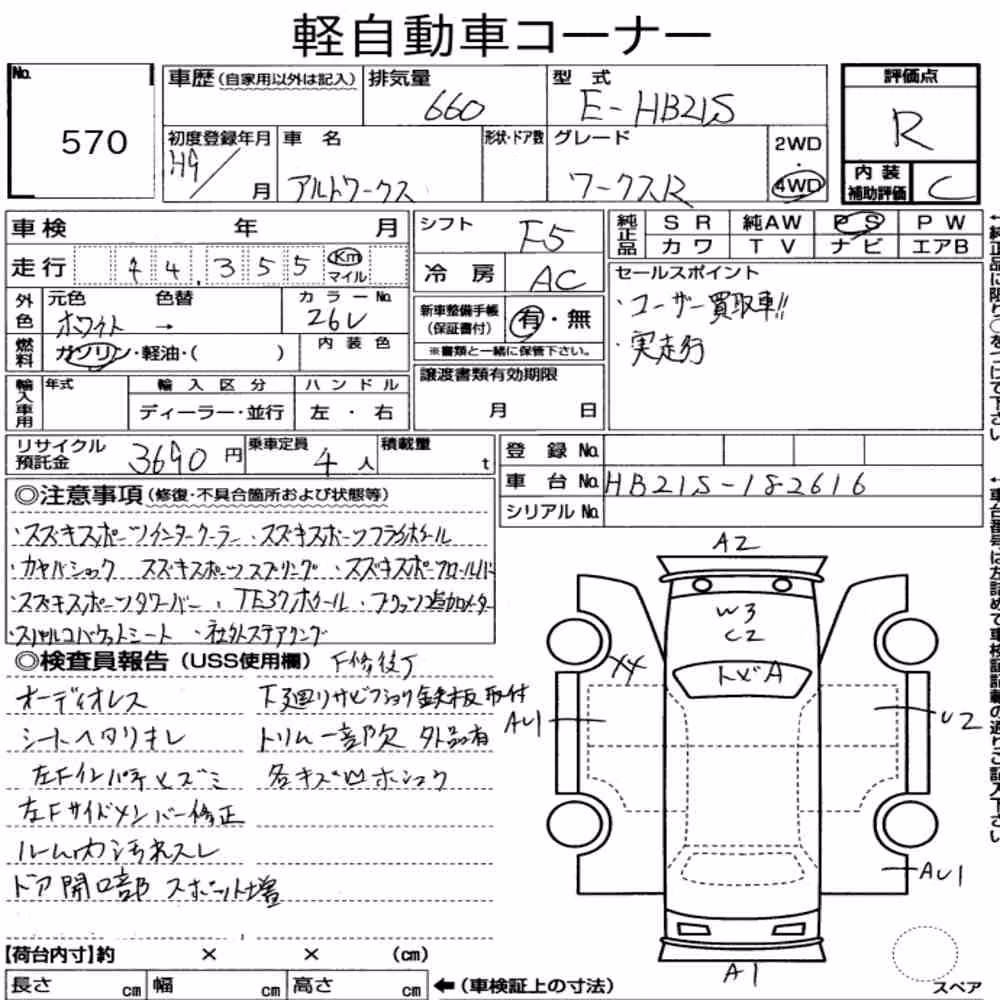 軽自動車コーナー
No.
570
車歴(自家用以外は記入)
排気量
660
型 式
E-HB21S
評価点
R
初度登録年月
H9/ 月
車 名
アルトワークス
形状・ドア数
グレード
ワークスR
2WD
・
4WD
内 装
補助評価
C
車検 年 月
シフト
F5
純正品
S R 純AW P S P W
カワ T V ナビ エアB
走行 44,355 Km
マイル
冷 房
AC
セールスポイント
・ユーザー買取車!!
・実走行
外色
元色 色替
ホワイト →
カラーNo.
26U
新車整備手帳
(保証書付)
有・無
※書類と一緒に保管下さい。
燃料
ガソリン・軽油・( )
内 装 色
輸入車用
年式
輸 入 区 分
ハ ン ド ル
ディーラー・並行
左 ・ 右
譲渡書類有効期限
月 日
リサイクル
預託金
3690 円
乗車定員
4 人
積載量
t
登 録 No.
車 台 No. HB21S-182616
シリアル No.
◎注意事項(修復・不具合箇所および状態等)
・スズキスポーツインタークーラー、スズキスポーツフライホイール
・カヤバショック スズキスポーツスプリング、スズキスポーツロールバー
・スズキスポーツタワーバー、TE37ホイール、
・スパルコバケットシート ・社外ステアリング
◎検査員報告(USS使用欄)
オーディオレス
シートヘタリキレ
左Fインパチヒズミ
左Fサイドメンバー修正
ルーム内汚れスレ
ドア開口部 スポット増
下廻りサビフショク鉄板取付
トリム一部欠 外品有
各キズ凹ホシュウ
A2
W3
C2
トビA
XX
AU1
U2
AU1
A1
スペア
【荷台内寸】約 × × (cm)
長さ cm 幅 cm 高さ cm
←(車検証上の寸法)
←純正品に限り○をつけて下さい。
←車台番号は左詰めで車検証記載の通りご記入下さい。